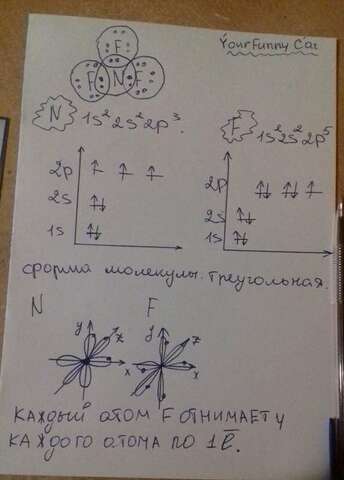 YourFunny Cat
F
F N F
N 1s² 2s² 2p³.
F 1s² 2s² 2p⁵
2p ↑ ↑ ↑
2s ↑↓
1s ↑↓
2p ↑↓ ↑↓ ↑
2s ↑↓
1s ↑↓
форма молекулы: треугольная.
N F
y z x
y z x
каждый атом F отнимает у
каждого атома по 1ē.